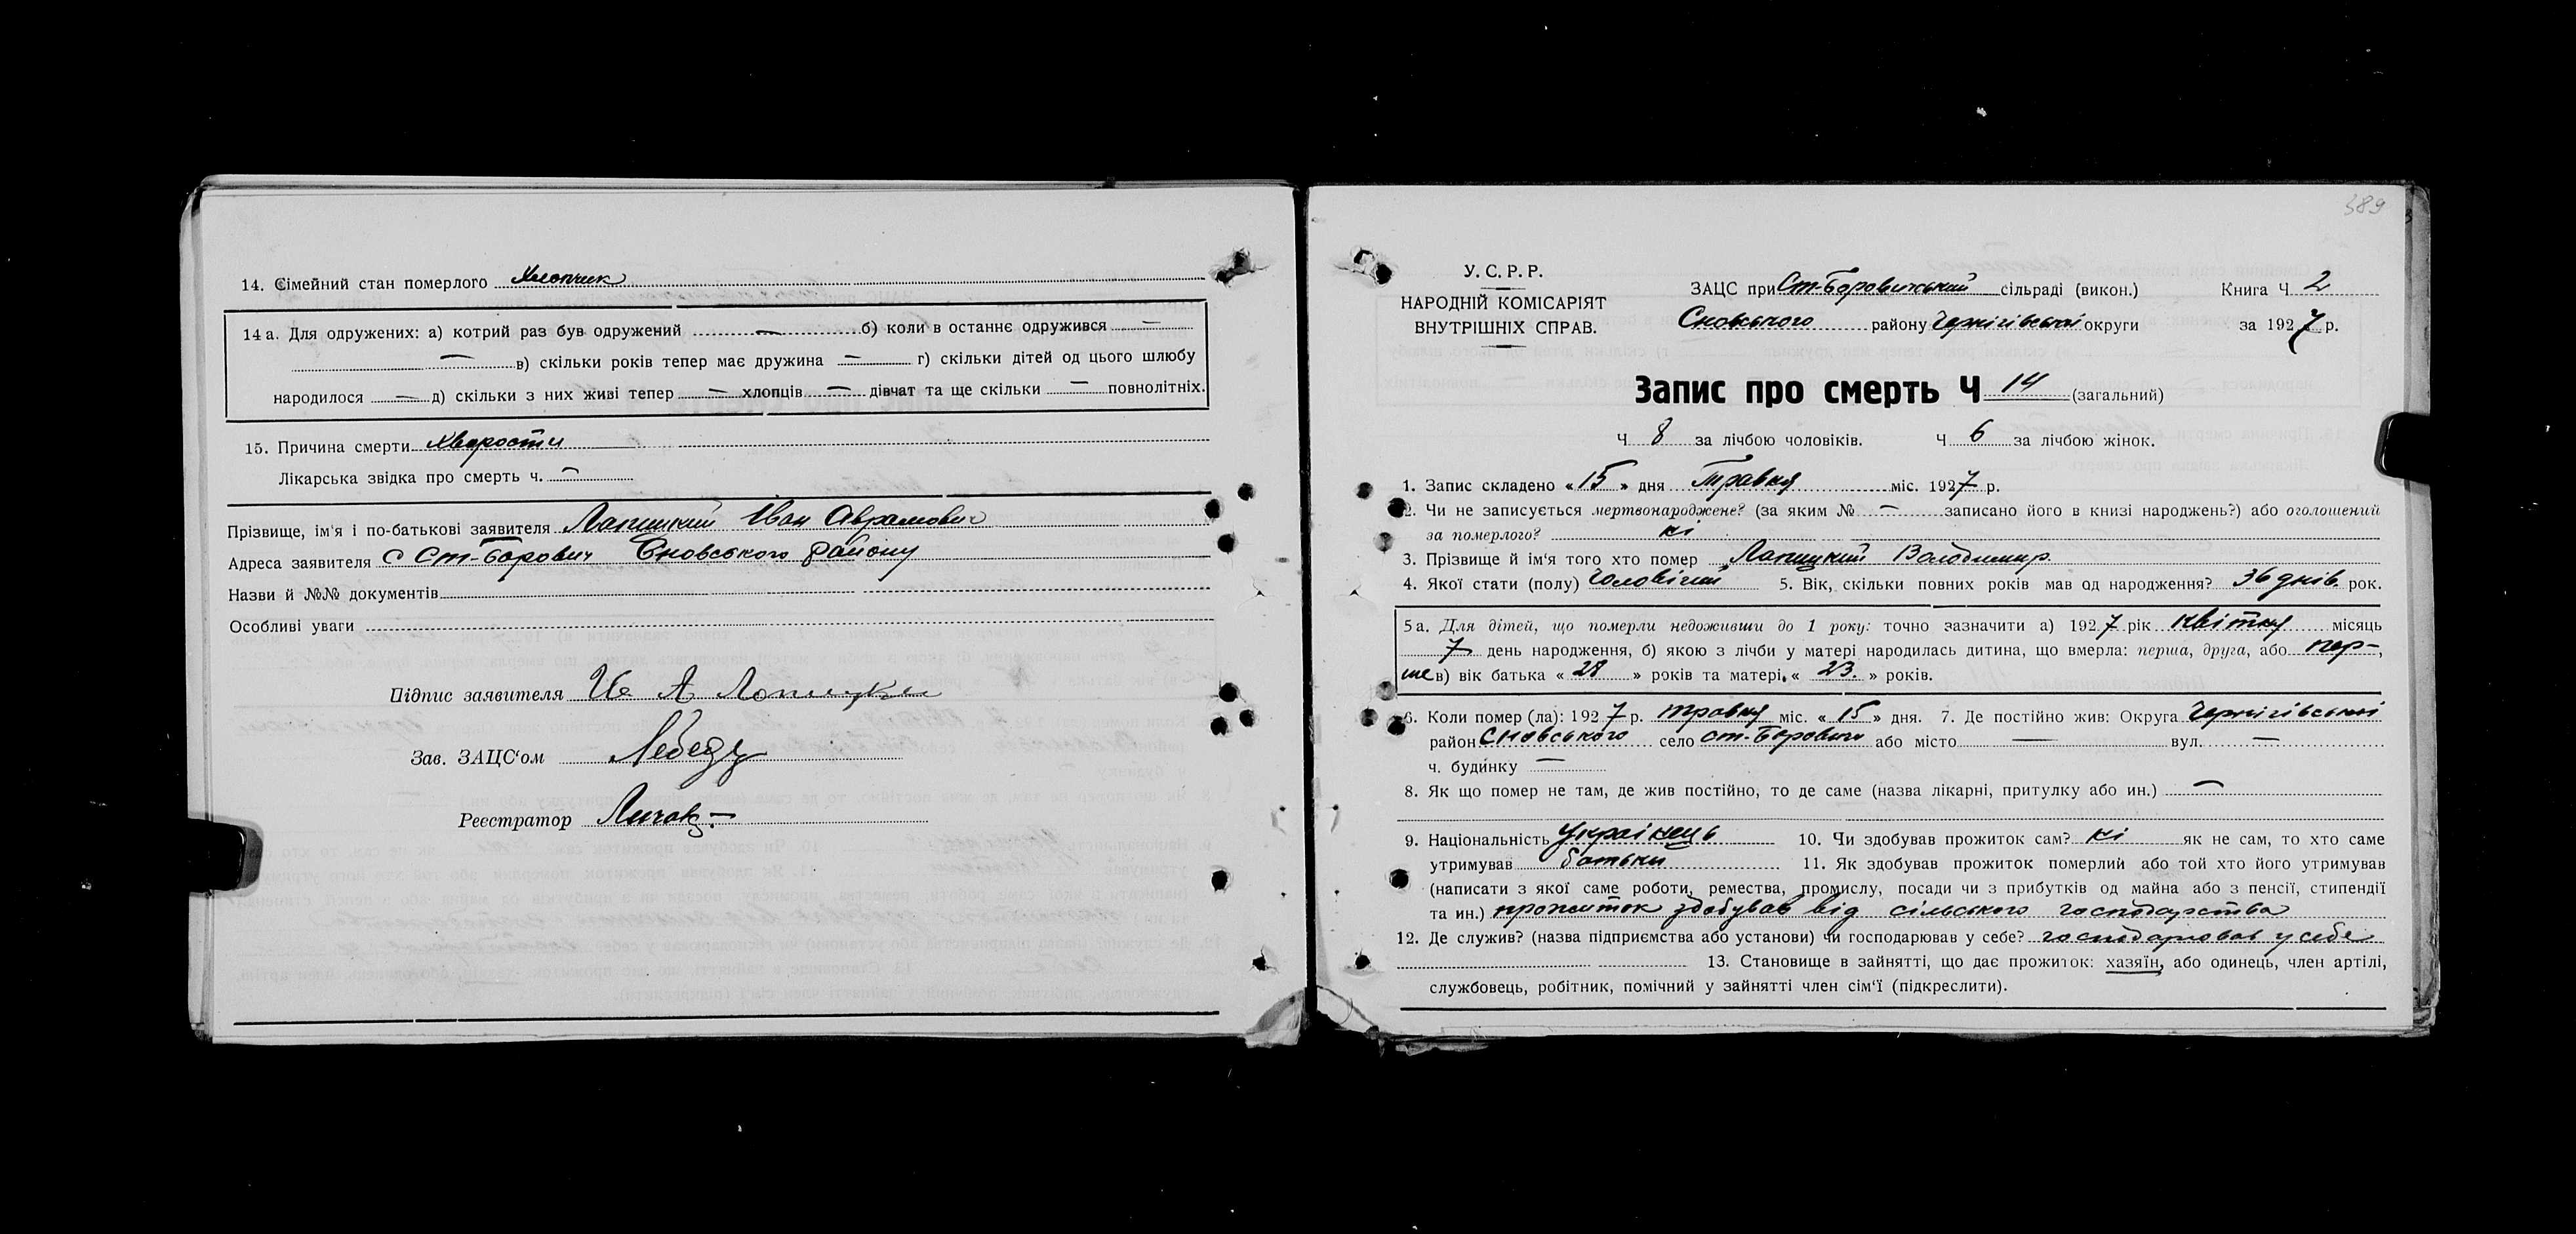 14. Сімейний стан померлого Хлопчик
14 а. Для одружених: а) котрий раз був одружений — б) коли в останнє одружився —
— в) скільки років тепер має дружина — г) скільки дітей од цього шлюбу
народилося — д) скільки з них живі тепер — хлопців — дівчат та ще скільки — повнолітніх.
15. Причина смерти Хворости
Лікарська звідка про смерть ч. —
Прізвище, ім'я і по-батькові заявителя Лапицкий Іван Аврамович
Адреса заявителя с Ст-Борович Сновського району
Назви й №№ документів
Особливі уваги
Підпис заявителя Ив А Лапицки
Зав. ЗАЦС'ом
Реєстратор
389
У. С. Р. Р.
НАРОДНІЙ КОМІСАРІЯТ
ВНУТРІШНІХ СПРАВ.
ЗАЦС при Ст-Боровицький сільраді (викон.) Книга Ч 2
Сновського району Чернігівської округи за 1927 р.
Запис про смерть Ч 14 (загальний)
Ч 8 за лічбою чоловіків. Ч 6 за лічбою жінок.
1. Запис складено « 15 » дня Травня міс. 1927 р.
2. Чи не записується мертвонароджене? (за яким № — записано його в книзі народжень?) або оголошений
за померлого? ні
3. Прізвище й ім'я того хто помер Лапицкий Володимир.
4. Якої стати (полу) Чоловічий 5. Вік, скільки повних років мав од народження? 36 днів. рок.
5 а. Для дітей, що померли недоживши до 1 року: точно зазначити а) 1927 рік Квітня місяць
7 день народження, б) якою з лічби у матері народилась дитина, що вмерла: перша, друга, або пер-,
ше в) вік батька « 28 » років та матері « 23. » років.
6. Коли помер (ла): 1927 р. травня міс. « 15 » дня. 7. Де постійно жив: Округа Чернігівської
район Сновського село ст-Борович або місто — вул. —
ч. будинку —
8. Як що помер не там, де жив постійно, то де саме (назва лікарні, притулку або ин.) —
9. Національність Українець 10. Чи здобував прожиток сам? ні як не сам, то хто саме
утримував батьки 11. Як здобував прожиток померлий або той хто його утримував
(написати з якої саме роботи, ремества, промислу, посади чи з прибутків од майна або з пенсії, стипендії
та ин.) прожиток здобував від сільського господарства
12. Де служив? (назва підприємства або установи) чи господарював у себе? господарював у себе
13. Становище в зайнятті, що дає прожиток: хазяїн, або одинець, член артілі,
службовець, робітник, помічний у зайнятті член сім'ї (підкреслити).